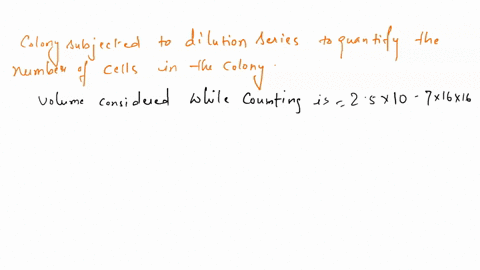 Colony subjected to dilution series to quantify the
number of cells in the colony.
Volume considered while counting is = 2.5×10-7×16×16